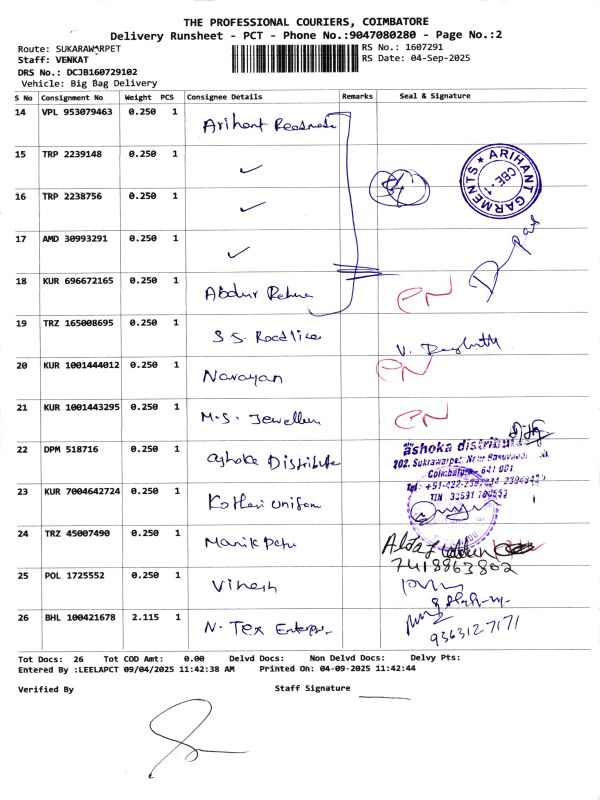 THE PROFESSIONAL COURIERS, COIMBATORE
Delivery Runsheet - PCT - Phone No.:9047080280 - Page No.:2
Route: SUKARAWARPET
RS No.: 1607291
Staff: VENKAT
RS Date: 04-Sep-2025
DRS No.: DCJB160729102
Vehicle: Big Bag Delivery
S No Consignment No Weight PCS Consignee Details Remarks Seal & Signature
14 VPL 953079463 0.250 1 Arihant
15 TRP 2239148 0.250 1 ✓
16 TRP 2238756 0.250 1 ✓
17 AMD 30993291 0.250 1 ✓
ARIHANT GARMENTS ★ CBE - 1
18 KUR 696672165 0.250 1 Abdur
19 TRZ 165008695 0.250 1 S S.
20 KUR 1001444012 0.250 1 Narayan
21 KUR 1001443295 0.250 1 M.S. Jewellers
22 DPM 518716 0.250 1 Ashoka Distribute
ashoka distribut
202, Sukrawarpet
Coimbatore - 641 001
23 KUR 7004642724 0.250 1 Kothari Uniform
24 TRZ 45007490 0.250 1 Manik
7418863802
25 POL 1725552 0.250 1 Vinesh
26 BHL 100421678 2.115 1 N. Tex Enterpr
9363127171
Tot Docs: 26 Tot COD Amt: 0.00 Delvd Docs: Non Delvd Docs: Delvy Pts:
Entered By :LEELAPCT 09/04/2025 11:42:38 AM Printed On: 04-09-2025 11:42:44
Verified By Staff Signature